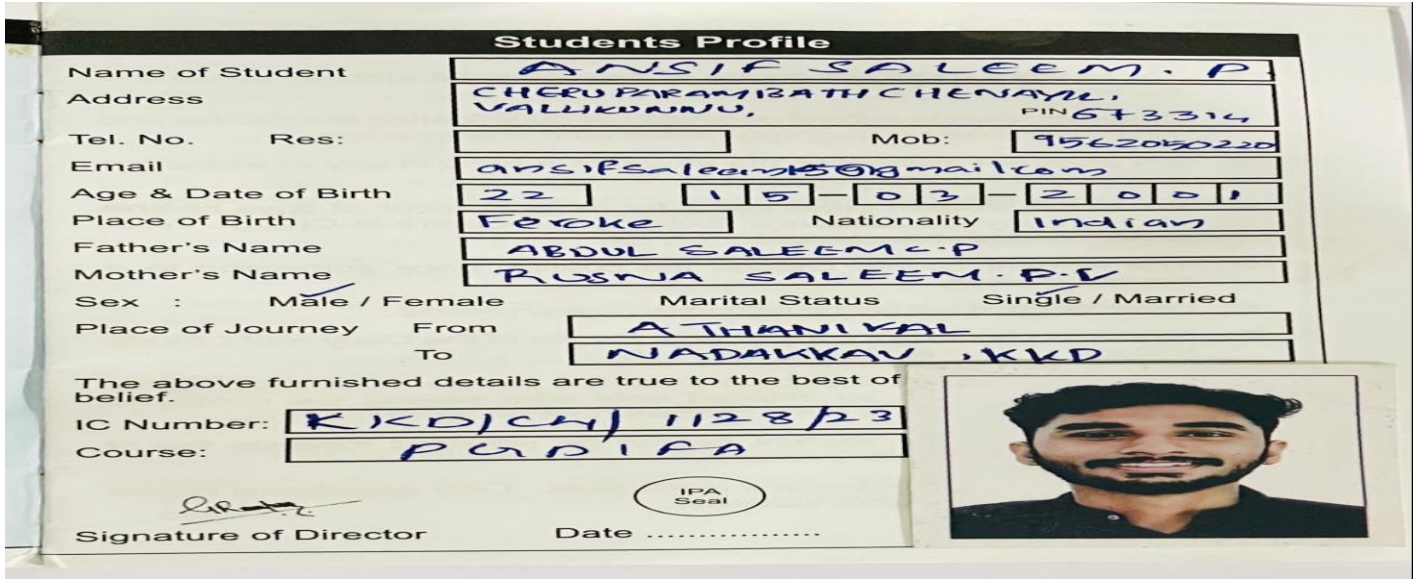 Students Profile
Name of Student ANSIF SALEEM. P
Address CHERUPARAMBATH CHENAYIL,
VALLIKUNNU, PIN 673314
Tel. No. Res: Mob: 9562050220
Email ansifsaleem150@gmail.com
Age & Date of Birth 22 15-03-2001
Place of Birth Feroke Nationality Indian
Father's Name ABDUL SALEEM C.P
Mother's Name RUSNA SALEEM. P.V
Sex : Male / Female Marital Status Single / Married
Place of Journey From ATHANIKAL
To NADAKKAV, KKD
The above furnished details are true to the best of
belief.
IC Number: KKD/CH/1128/23
Course: PGDIFA
IPA
Seal
Signature of Director Date .................